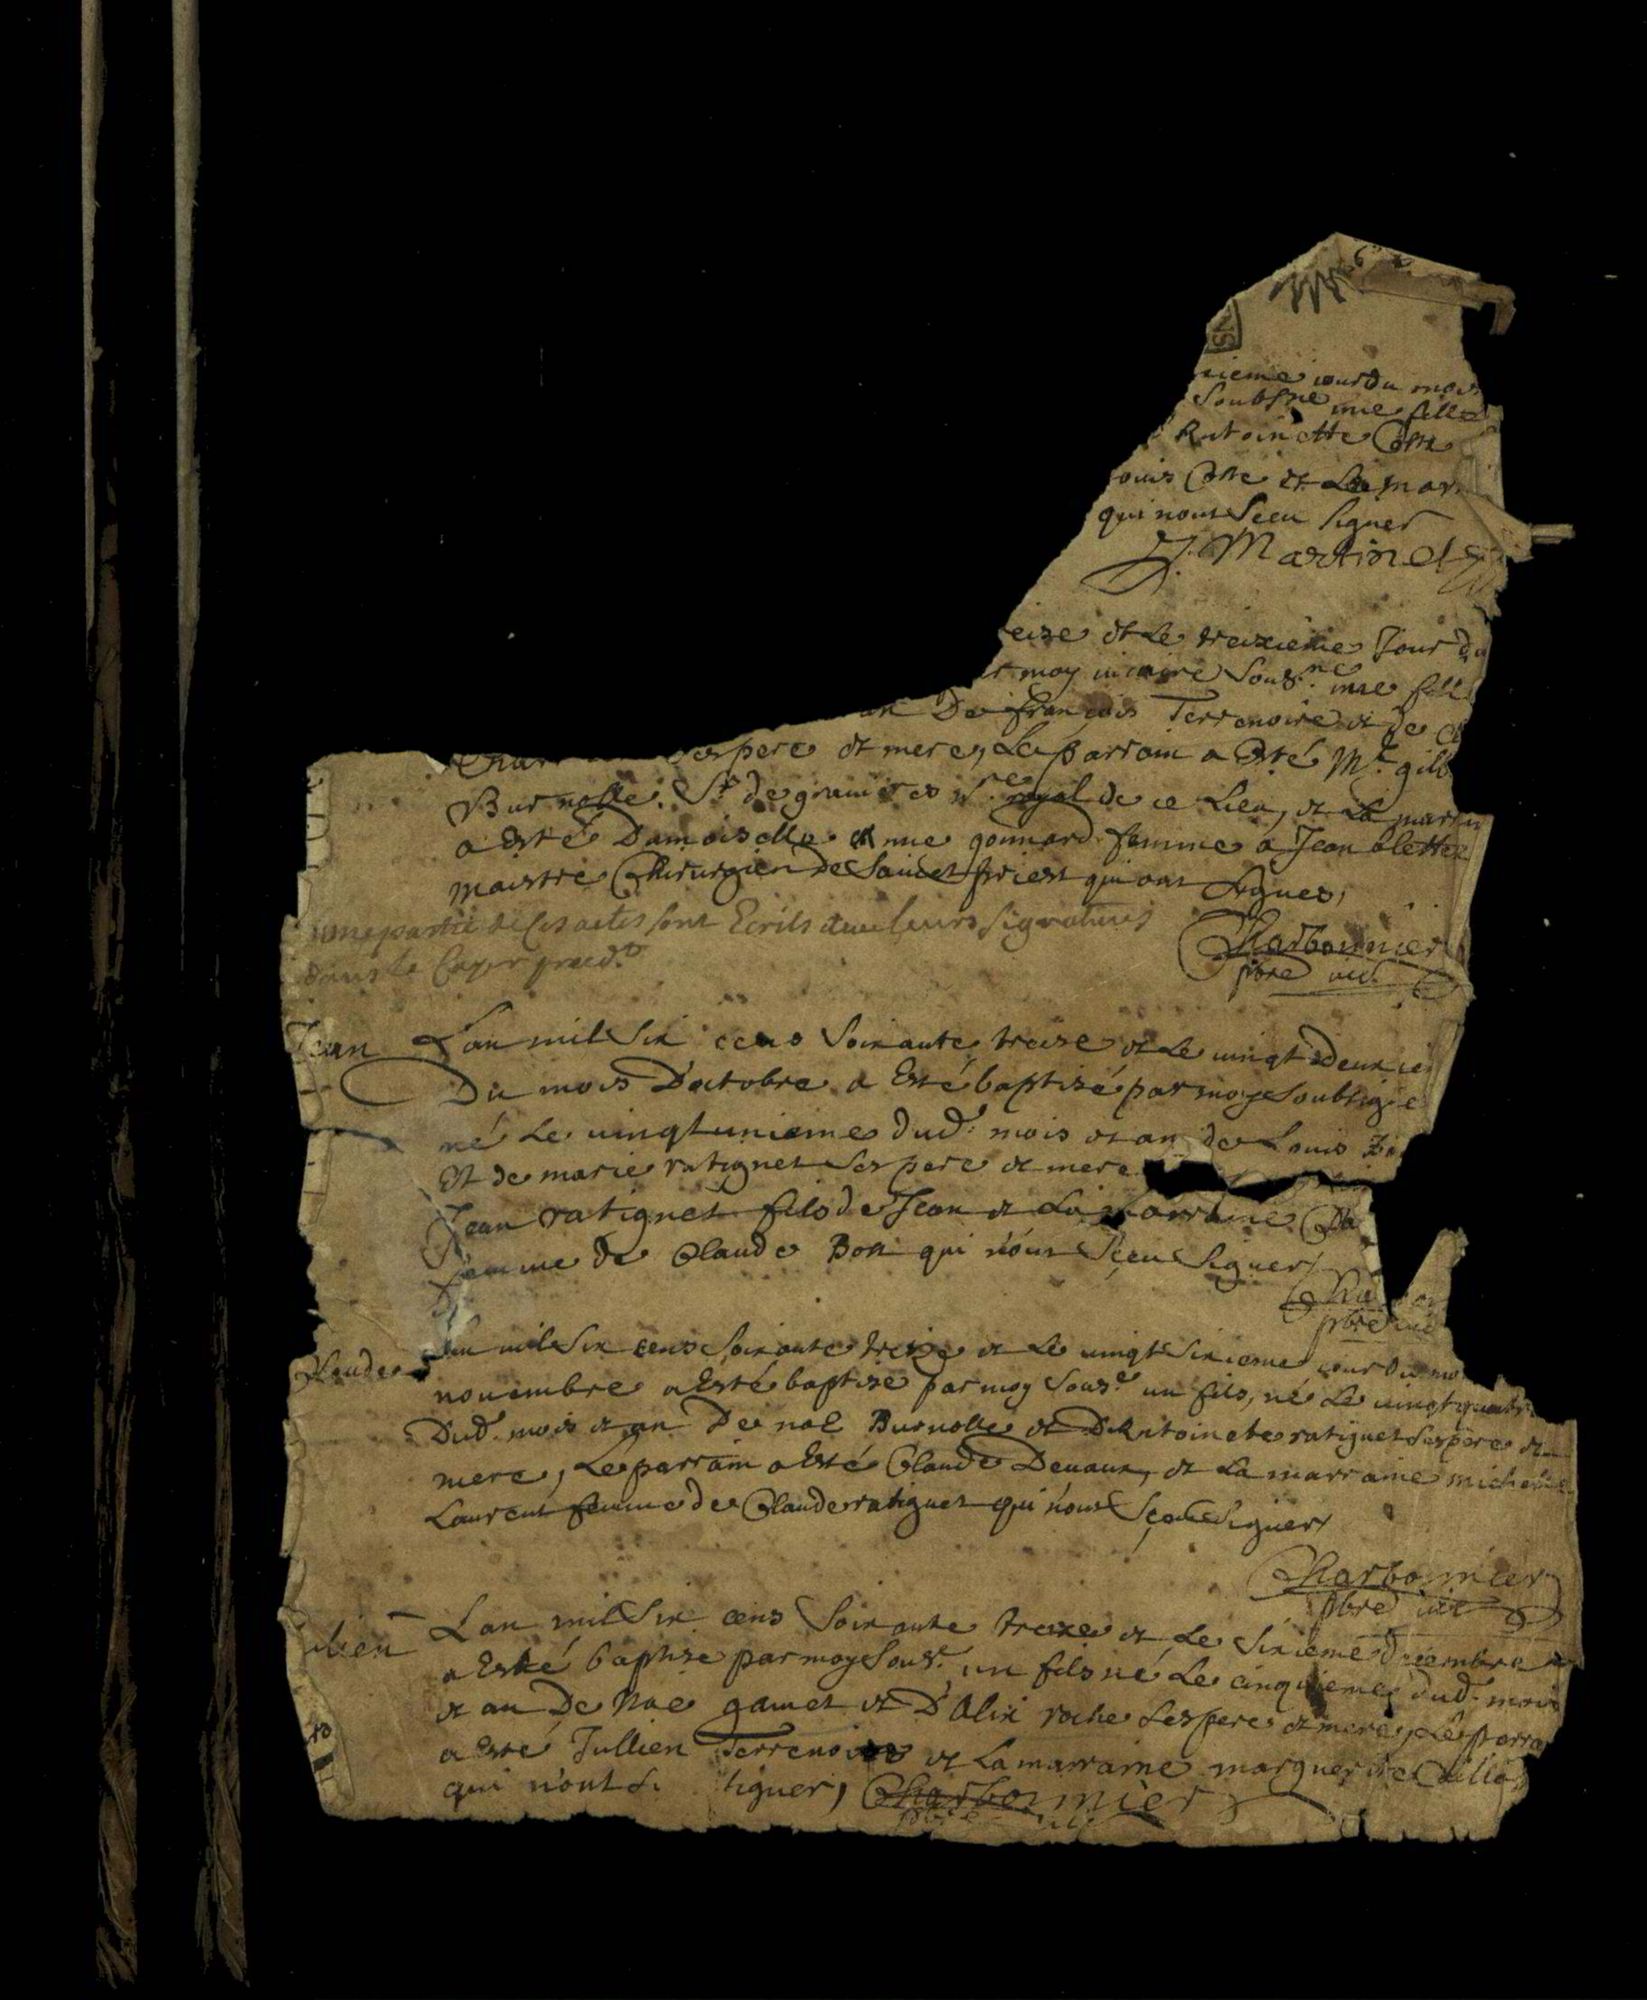 ieme jour du mois
Soubsne une fille
Antoinette Coste
ouis Coste et La mar
qui nont sceu signer
J. Martinet
eize et Le treizieme Jour du
moy vicaire sousne une fill
an De françois Terrenoire et de
ses pere et mere, Le parrain a Esté Mre gilb
Burnolle Sr de royal de ce Lieu, et La marrin
a Esté Damoiselle Anne gonnard femme a Jean blettex
maistre Chirurgien De Sainct priest qui ont signes,
une partie de ces actes sont Ecrits avec leurs signatures
dans le Cayer preced.
Charbonnier
pbre vic.
Jean
L'an mil Six cens Soixante treize et Le vingt Deuxie
Du mois D'octobre a Esté baptizé par moy Soubsigne
né Le vingtunieme dud. mois et an de Louis
Et de marie ratignet Ses pere et mere
Jean ratignet fils de Jean et La marraine
femme de Claude Bost qui n'ont Sceu Signer
Cha
pbre vic
Claude
L'an mil Six cens Soixante treize et Le vingt Sixieme jour Du mo
novembre a Esté baptize par moy Sousé un fils, né Le vingt quatr
Dud. mois et an De noé Burnolle et D'Antoinete ratignet Ses pere et
mere, Le parrain a Esté Claude Devaux, et La marraine michelle
Laurent femme de Claude ratignet qui n'ont Sceu Signer
Charbonnier
pbre vic
ulien
L'an mil Six cens Soixante treize et Le Sixieme Decembre
a Esté baptize par moy Sousé un fils né Le cinquiemes dud. mois
et an De Noe gamet et D'Alix roche Ses pere et mere, Le parra
a Esté Jullien Terrenoire et La marraine marguerite
qui n'ont signer, Charbonnier
pbre vic